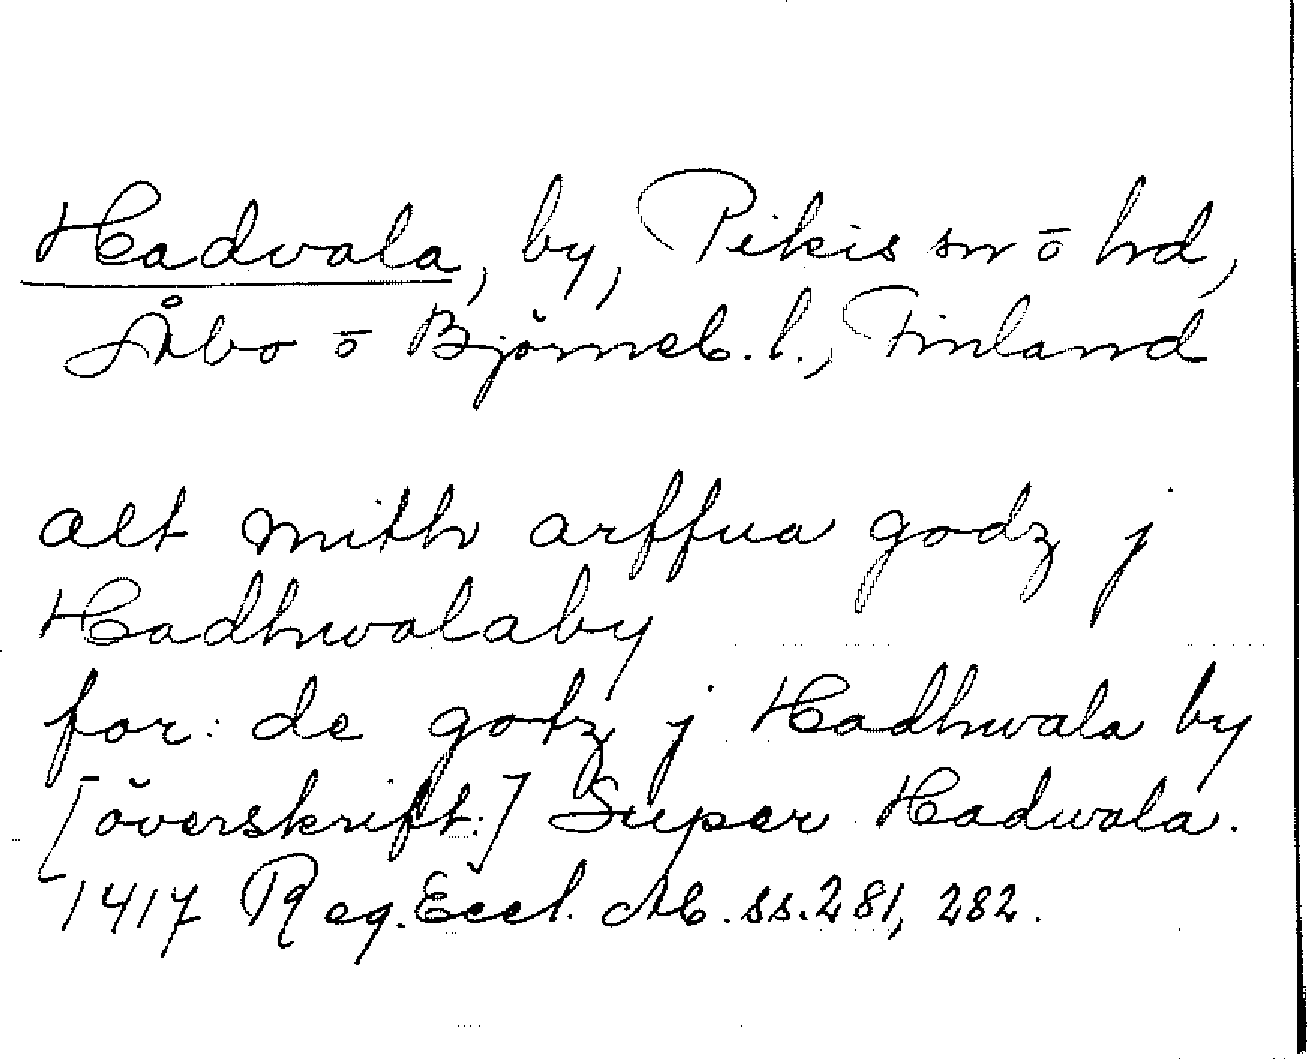 Hadvala, by, Pikis sn ō hd,
Åbo ō Björneb. l., Finland
alt mith arffua godz j
Hadhwalaby
for: de godz j Hadhwala by
[överskrift:] Super Hadwala.
1417 Reg. Eccl. Ab. ss. 281, 282.